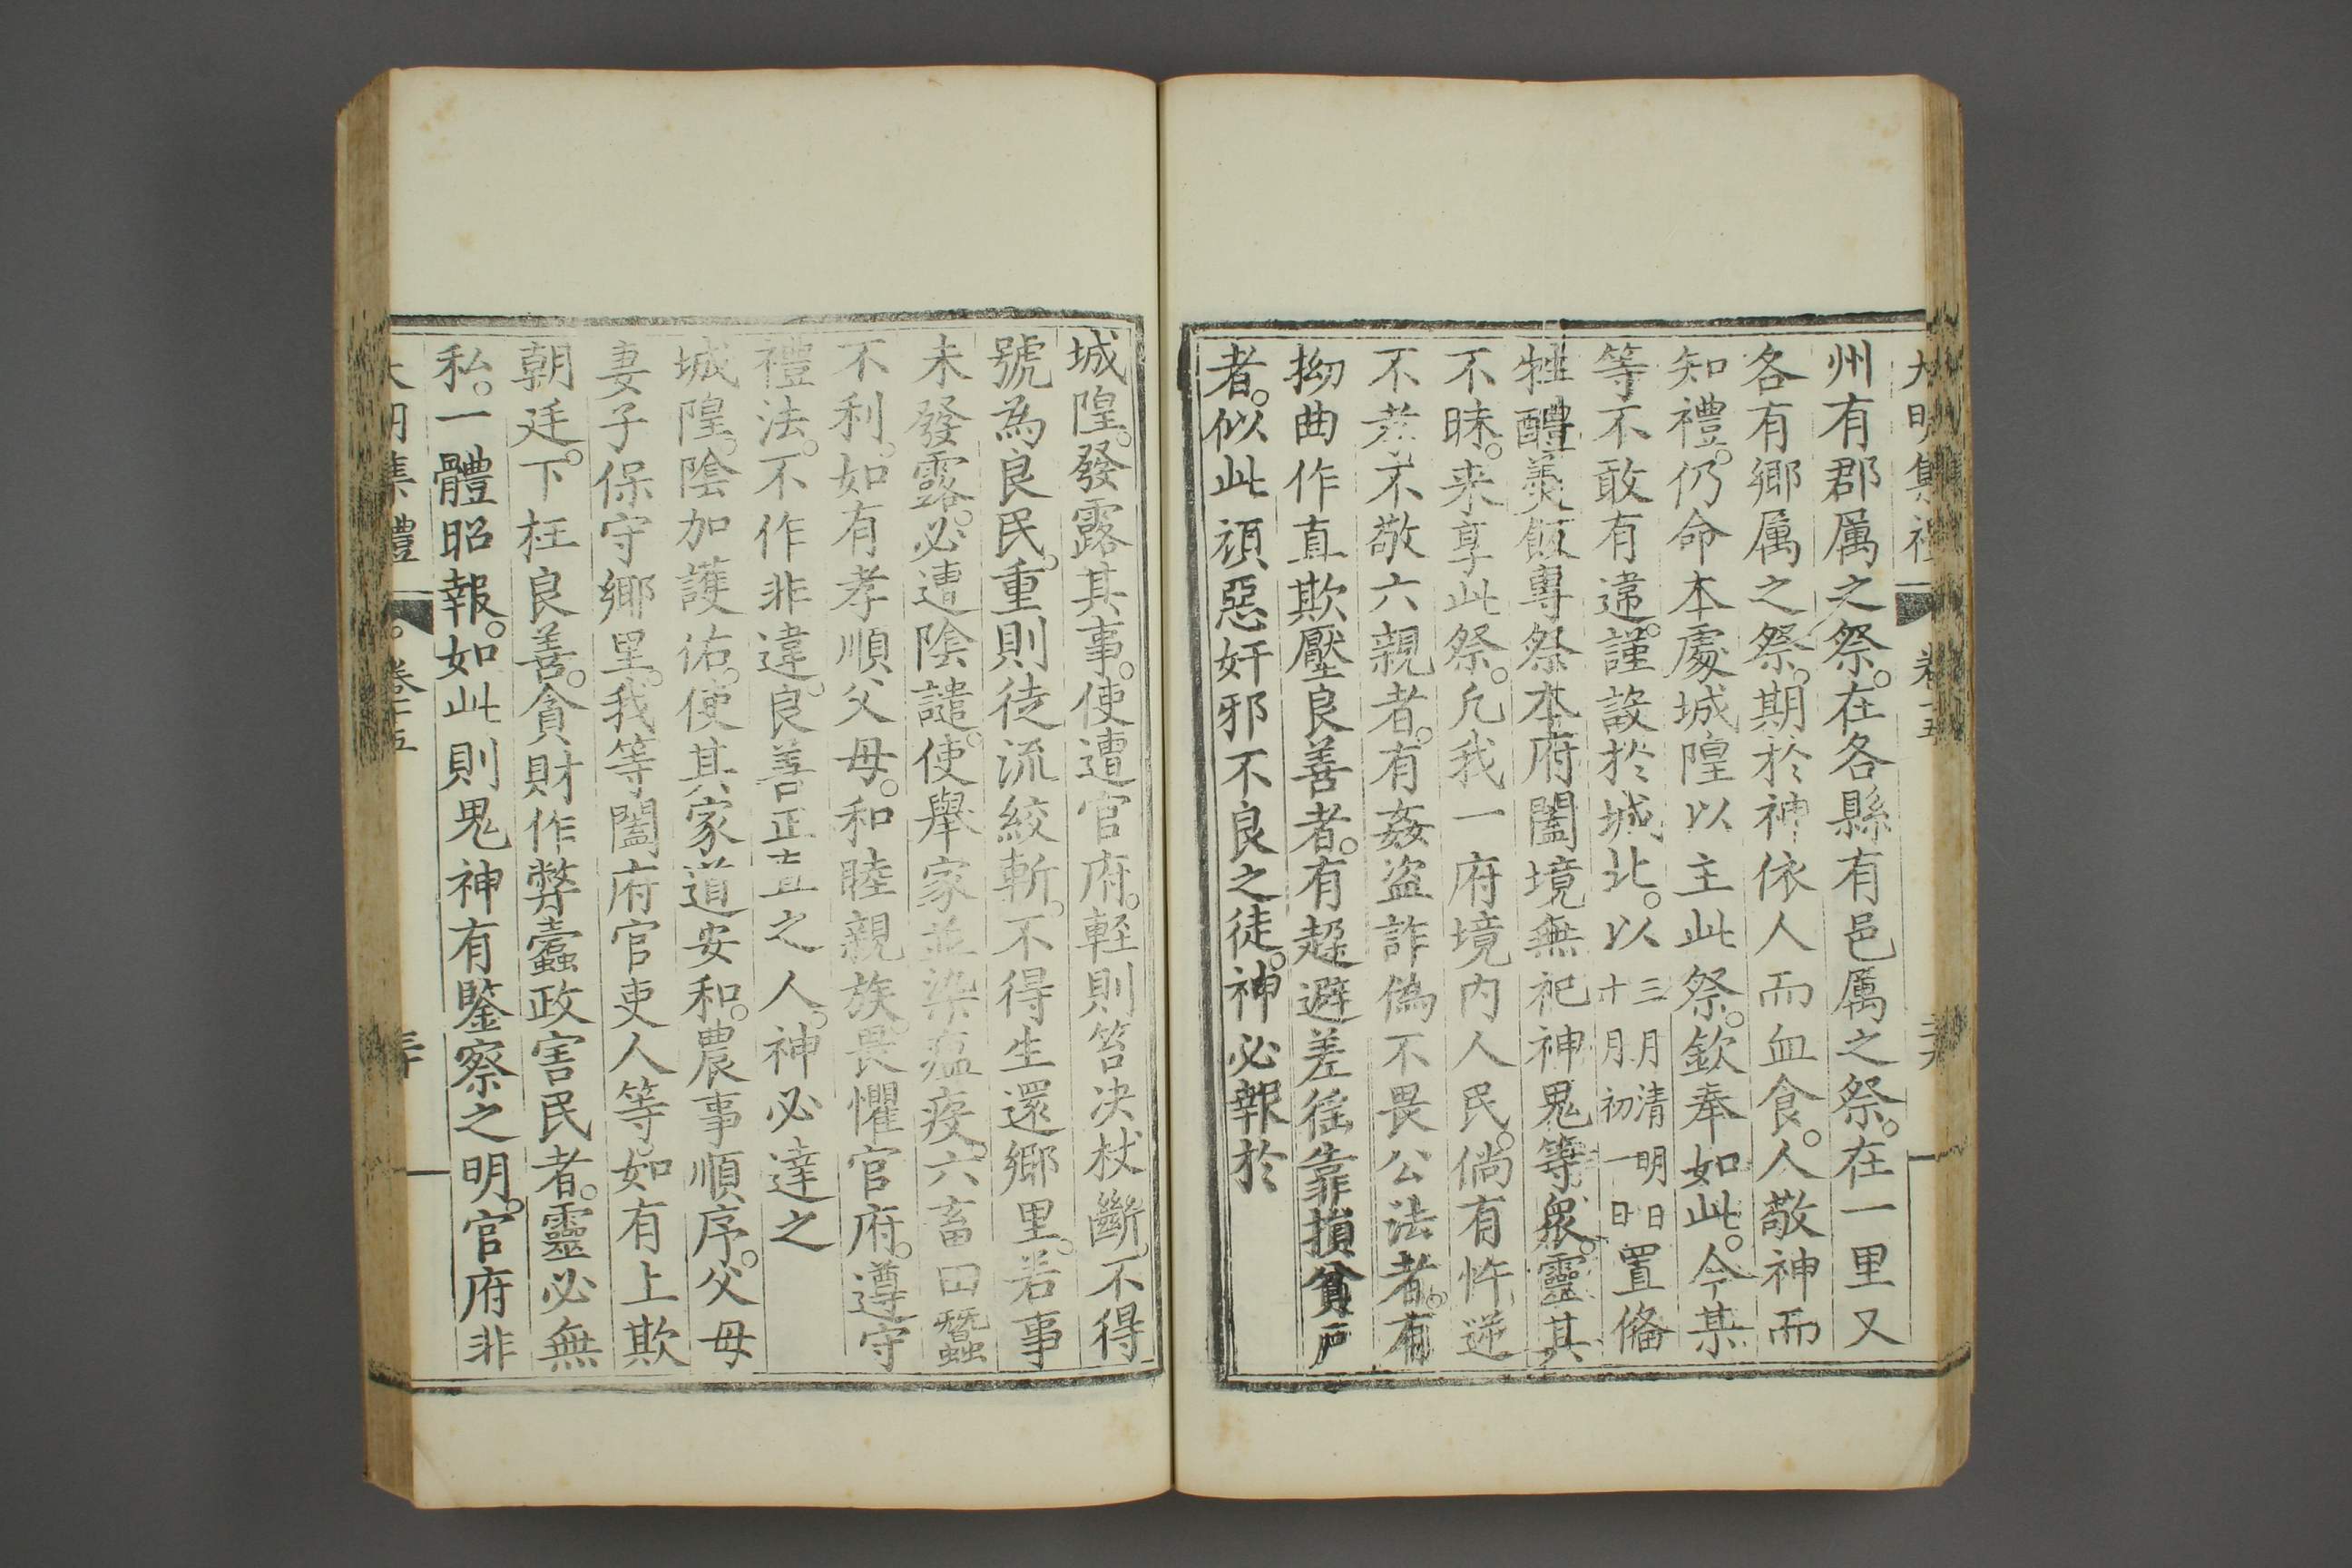 大明集禮 卷十五
州有郡厲之祭。在各縣有邑厲之祭。在一里又
各有鄉厲之祭。期於神依人而血食。人敬神而
知禮。仍命本處城隍以主此祭。欽奉如此。今某
等不敢有違。謹設於城北。以三月清明日十月初一日置俻
牲醴羹飯專祭本府闔境無祀神鬼等衆。靈其
不昧。来享此祭。凢我一府境内人民。倘有忤逆
不孝不敬六親者。有姦盗詐偽不畏公法者。有
拗曲作直欺壓良善者。有趨避差徭靠損貧戶
者。似此頑惡奸邪不良之徒。神必報於
城隍。發露其事。使遭官府。輕則笞决杖斷。不得
號為良民。重則徒流絞斬。不得生還鄉里。若事
未發露。必遭陰譴。使舉家並染瘟疫。六畜田蠶
不利。如有孝順父母。和睦親族。畏懼官府。遵守
禮法。不作非違。良善正直之人。神必達之
城隍。陰加護佑。使其家道安和。農事順序。父母
妻子保守鄉里。我等闔府官吏人等。如有上欺
朝廷。下枉良善。貪財作弊蠹政害民者。靈必無
私。一體昭報。如此則鬼神有鑒察之明。官府非
大明集禮 卷十五 三十